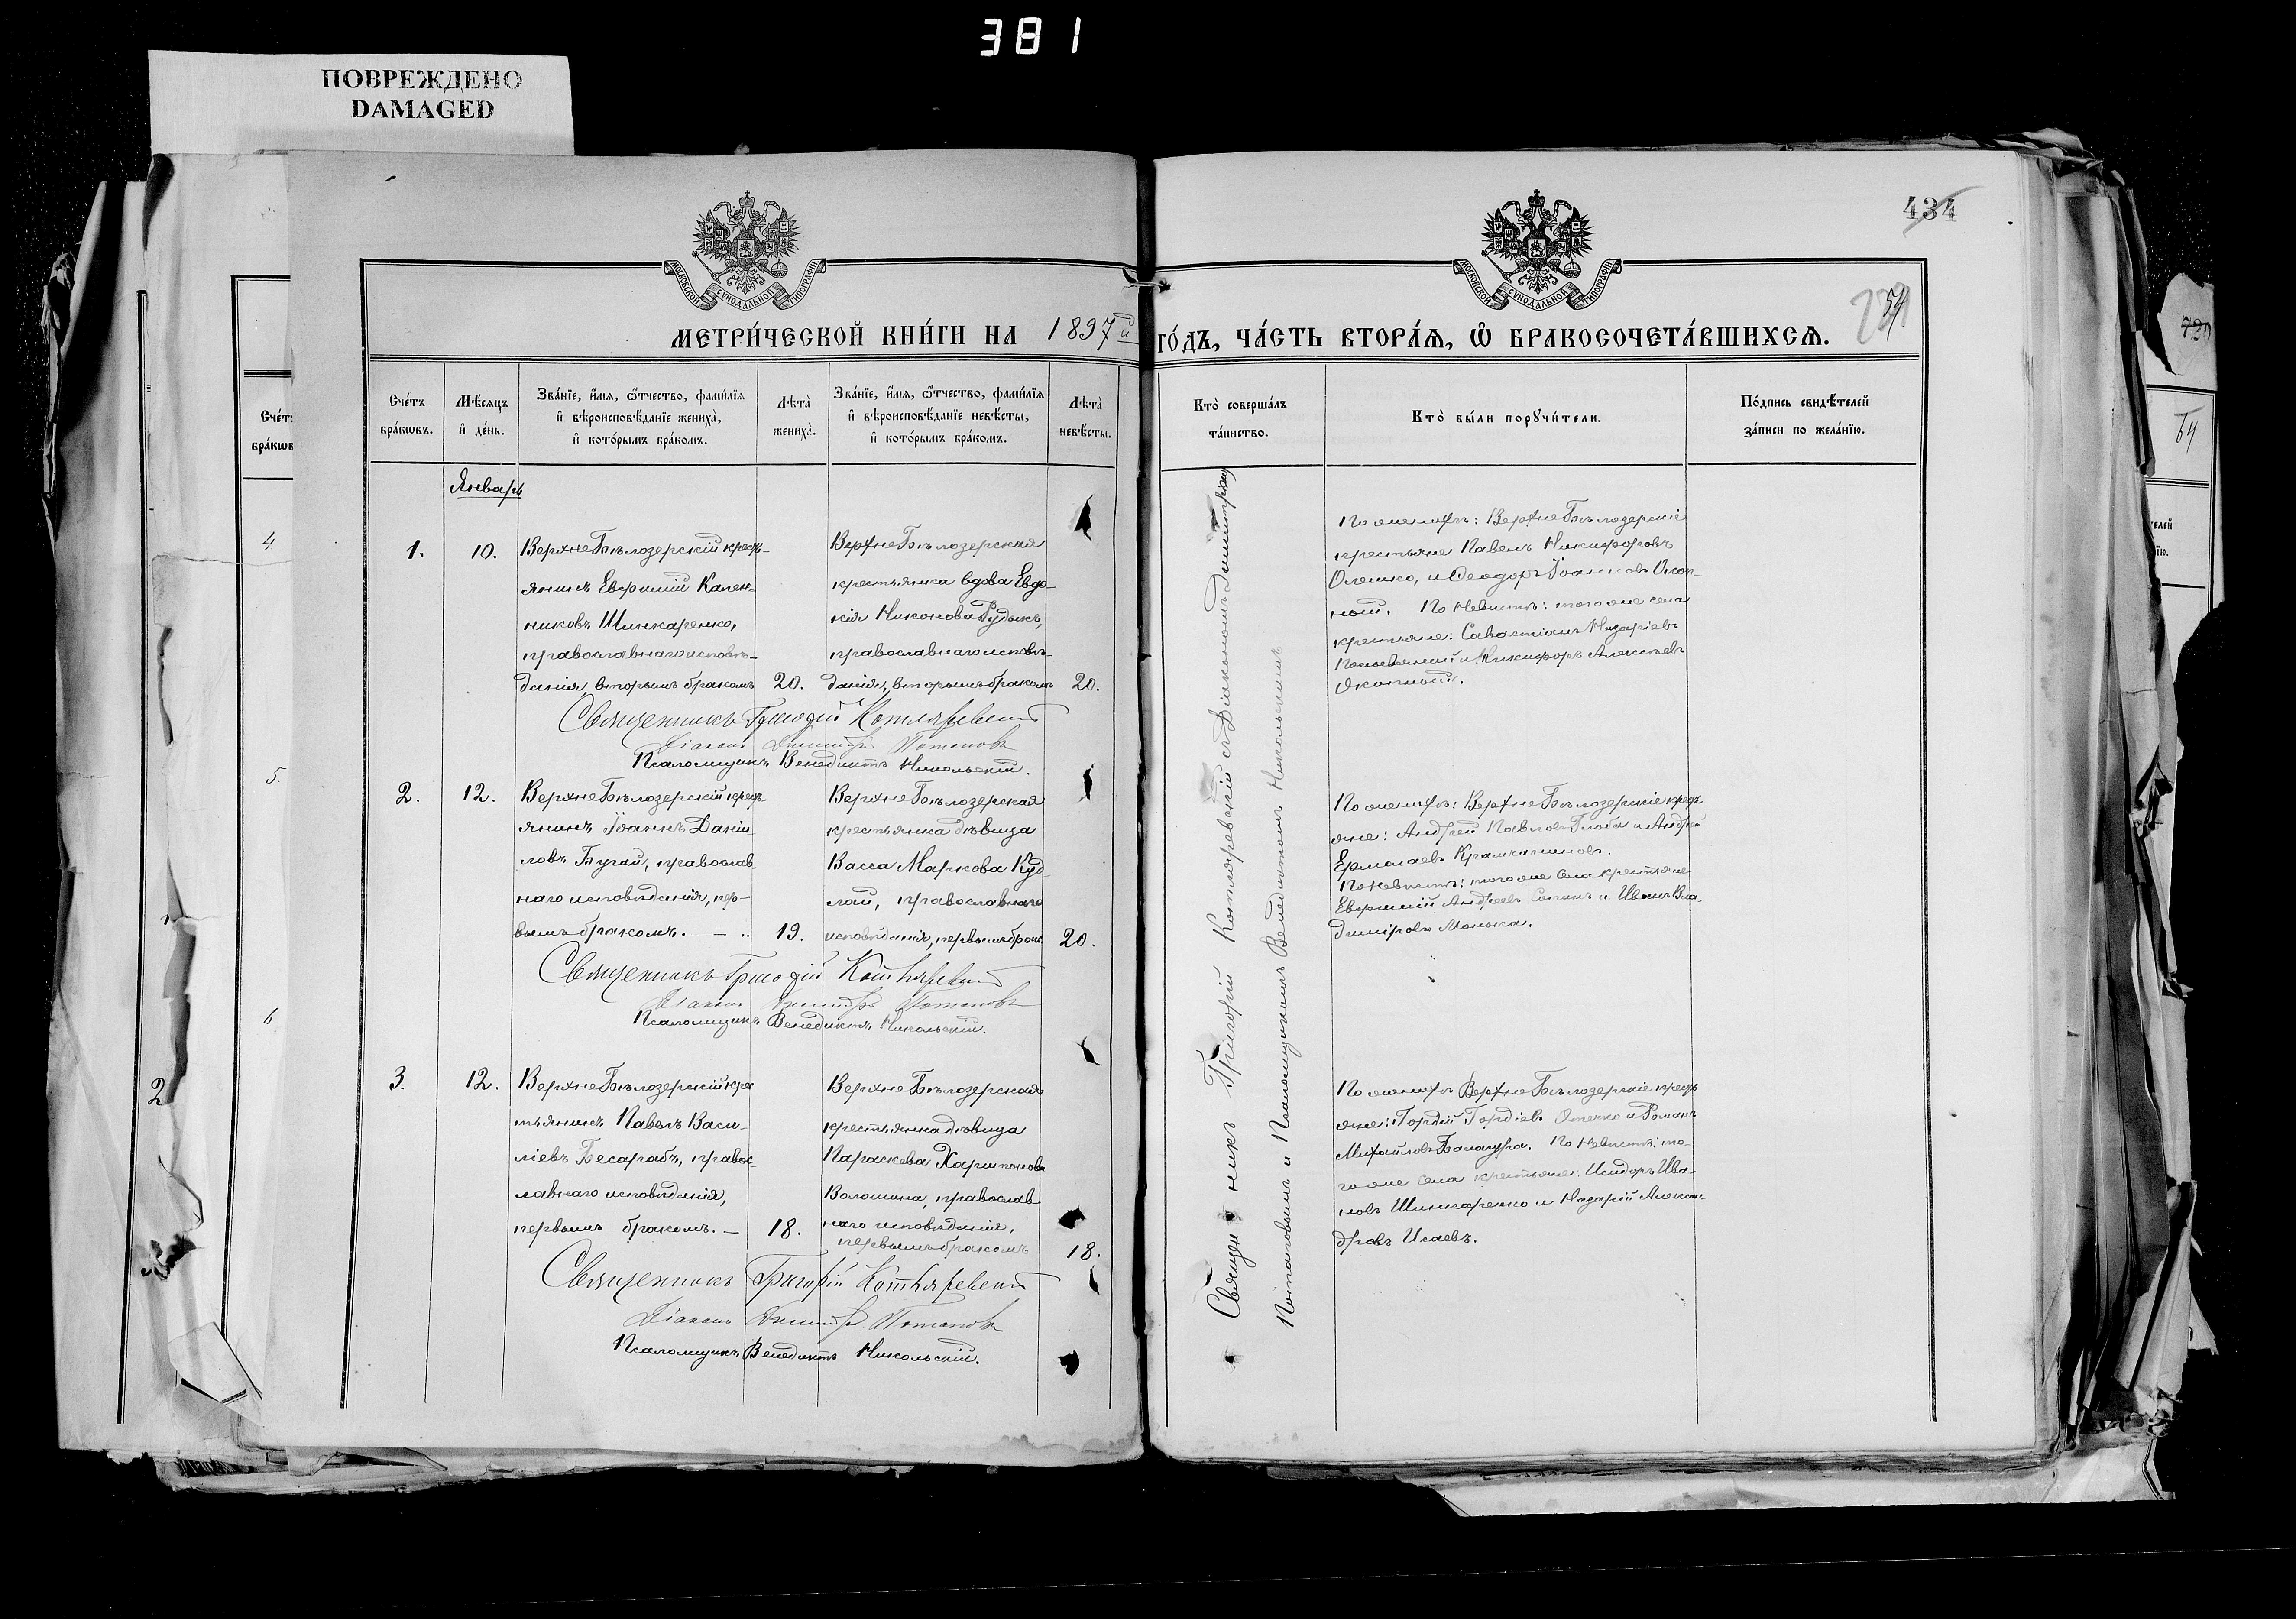 381
ПОВРЕЖДЕНО
DAMAGED
434
МОСКОВСКОЙ СѴНОДАЛЬНОЙ ТИПОГРАФІИ
МОСКОВСКОЙ СѴНОДАЛЬНОЙ ТИПОГРАФІИ
МЕТРИ́ЧЕСКОЙ КНИ́ГИ НА 1897й ГО́ДЪ, ЧА́СТЬ ВТОРА́Ѧ, Ѡ҆ БРАКОСОЧЕТА́ВШИХСѦ.
Сче́тъ
бра́кѡвъ.
Мѣ́сяцъ
и҆ де́нь.
Зва́нїе, и҆́мѧ, ѻ҆́тчество, фами́лїѧ
и҆ вѣроисповѣ́данїе жениха̀,
и҆ кото́рымъ бра́комъ.
Лѣта̀
жениха̀.
Зва́нїе, и҆́мѧ, ѻ҆́тчество, фами́лїѧ
и҆ вѣроисповѣ́данїе невѣ́сты,
и҆ кото́рымъ бра́комъ.
Лѣта̀
невѣ́сты.
Кто̀ соверша́лъ
та́инство.
Кто̀ бы́ли порꙋчи́тели.
По́дпись свидѣ́телей
за́писи по жела́нїю.
Январь
1.
10.
ВерхнеБѣлозерскій крест-
янинъ Евфимій Кален-
никовъ Шинкаренко,
православнаго исповѣ-
данія, вторымъ бракомъ
20.
ВерхнеБѣлозерская
крестьянка вдова Евдо-
кія Никонова Рудыкъ,
православнаго исповѣ-
данія, вторымъ бракомъ
20.
Священникъ Григорій Котляревскій
Діаконъ Димитрій Потаповъ
Псаломщикъ Венедиктъ Никольскій.
2.
12.
ВерхнеБѣлозерскій крест-
янинъ Іоаннъ Даніи-
ловъ Бугай, православ-
наго исповѣданія, пер-
вымъ бракомъ.
19.
ВерхнеБѣлозерская
крестьянка дѣвица
Васса Маркова Куд-
лай, православнаго
исповѣданія, первымъ брак.
20.
Священникъ Григорій Котляревскій
Діаконъ Димитрій Потаповъ
Псаломщикъ Венедиктъ Никольскій.
3.
12.
ВерхнеБѣлозерскій крес
тьянинъ Павелъ Васи-
ліевъ Бесарабъ, правос-
лавнаго исповѣданія,
первымъ бракомъ. —
18.
ВерхнеБѣлозерская
крестьянка дѣвица
Параскева Харитонова
Волошина, православ-
наго исповѣданія,
первымъ бракомъ
18.
Священникъ Григорій Котляревскій
Діаконъ Димитрій Потаповъ
Псаломщикъ Венедиктъ Никольскій.
Священникъ Григорій Котляревскій съ Діакономъ Димитріемъ
Потаповымъ и Псаломщикомъ Венедиктомъ Никольскимъ
По женихѣ: ВерхнеБѣлозерскіе
крестьяне Павелъ Никифоровъ
Олешко, и Ѳеодоръ Іоанновъ Окоп-
ный. По невѣстѣ: того же села
крестьяне: Савастіанъ Назаріевъ
и Никифоръ Алексѣевъ
Окопный.
По женихѣ: ВерхнеБѣлозерскіе крест
яне: Андрей Павловъ Глоба и Андрей
Ермолаевъ
По невѣстѣ: того же села крестьяне
Евфимій Андреевъ и Иванъ Вла-
диміровъ Монька.
По женихѣ ВерхнеБѣлозерскіе крест
яне: Гордій Гордіевъ и Романъ
Михайловъ Бандура. По невѣстѣ: то-
го же села крестьяне: Исидоръ Ива-
новъ Шинкаренко и Назарій Алексан-
дровъ Исаевъ.
Сче́тъ
бра́кѡвъ
4
5.
6
2